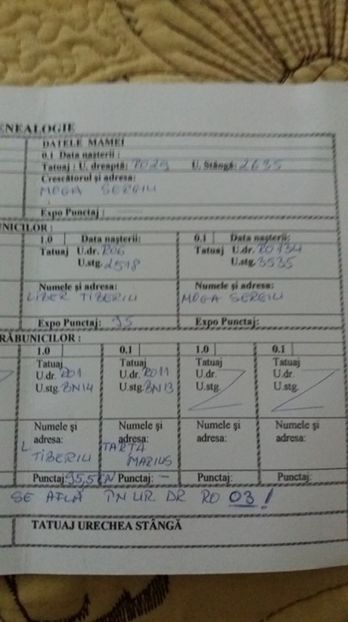 ENEALOGIE
DATELE MAMEI
0.1 Data nașterii :
Tatuaj : U. dreaptă: RO29 U. Stângă: 2635
Crescătorul și adresa:
MOGA SERGIU
Expo Punctaj :
UNICILOR :
1.0 Data nașterii: 0.1 Data nașterii:
Tatuaj U.dr. RO6 Tatuaj U.dr. RO134
U.stg. 2578 U.stg. 3535
Numele și adresa: Numele și adresa:
LIBER TIBERIU MOGA SERGIU
Expo Punctaj: 95 Expo Punctaj:
RĂBUNICILOR :
1.0 0.1 1.0 0.1
Tatuaj Tatuaj Tatuaj Tatuaj
U.dr. RO1 U.dr. RO11 U.dr. U.dr.
U.stg. BN14 U.stg. BN13 U.stg. U.stg.
Numele și Numele și Numele și Numele și
adresa: adresa: adresa: adresa:
L TIBERIU TARTA MARIUS
Punctaj: 95,5 Punctaj: — Punctaj: Punctaj:
SE AFLĂ ÎN UR DR RO 03 !
TATUAJ URECHEA STÂNGĂ